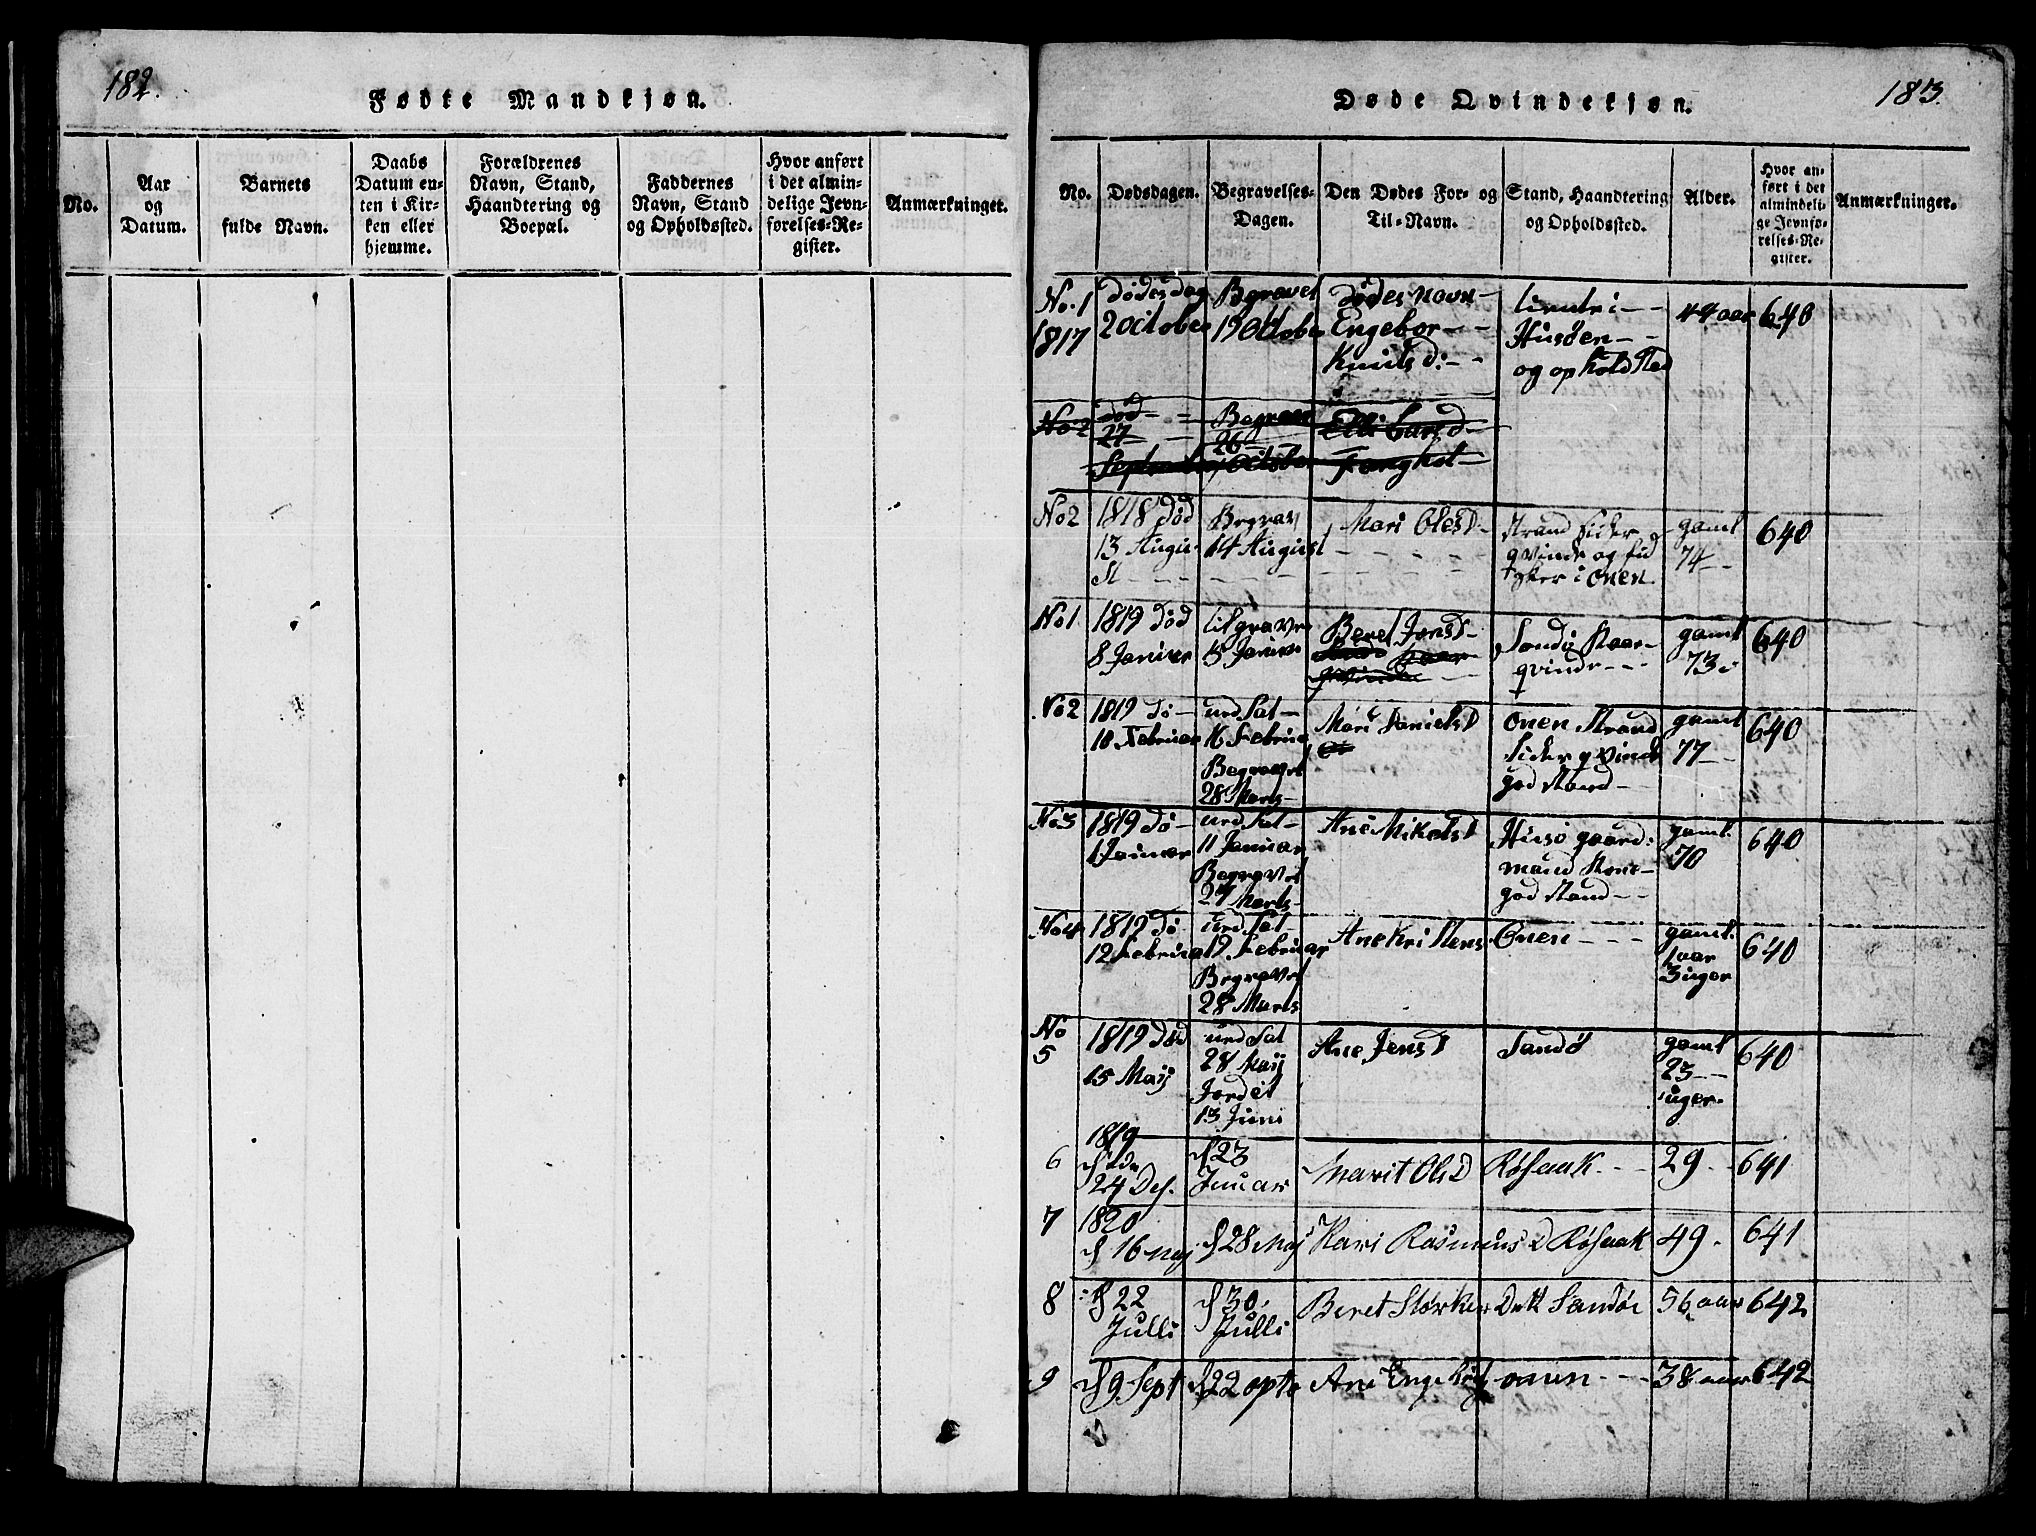 182.
Fødte Mandkjøn.
No.
Aar
og
Datum.
Barnets
fulde Navn.
Daabs
Datum en-
ten i Kir-
ken eller
hjemme.
Forældrenes
Navn, Stand,
Haandtering og
Boepæl.
Faddernes
Navn, Stand
og Opholdssted.
Hvor anført
i det almin-
delige Jevn-
førelses-Re-
gister.
Anmærkninger.
183.
Døde Qvindekjøn.
No.
Dødsdagen.
Begravelses-
Dagen.
Den Dødes For- og
Til-Navn.
Stand, Haandtering
og Opholdssted.
Alder.
Hvor an-
ført i det
almindeli-
ge Jevnfø-
relses-Re-
gister.
Anmærkninger.
No. 1
1817
Dødesdag
2 October
Bgravet
19 October
Dødes navn
Engebor
Knuts d:
Husøen
og ophold sted
44 aar
640
No 2
død
27
September
Begravet
26
October
Elli Lars d
No 2
1818 Død
13 Augu
st
Begrav
14 August
Mari Oles D
Strand sider
qvinde og
i Onen
gaml
74
640
No 1
1819 Død
8 Januar
Beret Jons D
Sandø Kaar
qvinde
gaml
73
640
No 2
1819 Dø
10 Februar
ud Sat
16 Februa
Begravet
28 Marts
Mari Daniels D
Onen Strand
sider qvinde
god stand
gaml
77
640
No 3
1819 Dø
1 Januar
ud Sat
11 Januar
Begravet
27 Marts
Ane Mikels D
Husø gaard
mand Kone
god stand
gaml.
70
640
No 4
1819 Dø
12 Februa
ud Sat
19 Februar
Begravet
28 Marts
Ane Kristens
Onen
gaml.
1 aar
3 uger
640
No
5
1819 Død
15 Maij
ud Sat
28 Maij
Jordet
13 Juni
Ane Jens D
Sandø
gaml
23
uger.
640
6
1819
24 Des.
d 23
Januar
Marit Ols D
Røsaak
29
641
7
1820
d 16 Maj
d 28 Maj
Kari Rasmus D
Røsaak
49.
641
8
d 22
Julli
d 30
Julli
Beret Størker Datt
Sandøe
56 aar
642
9
d 9 Sept
d 22
Ane
onen
38 aar
642